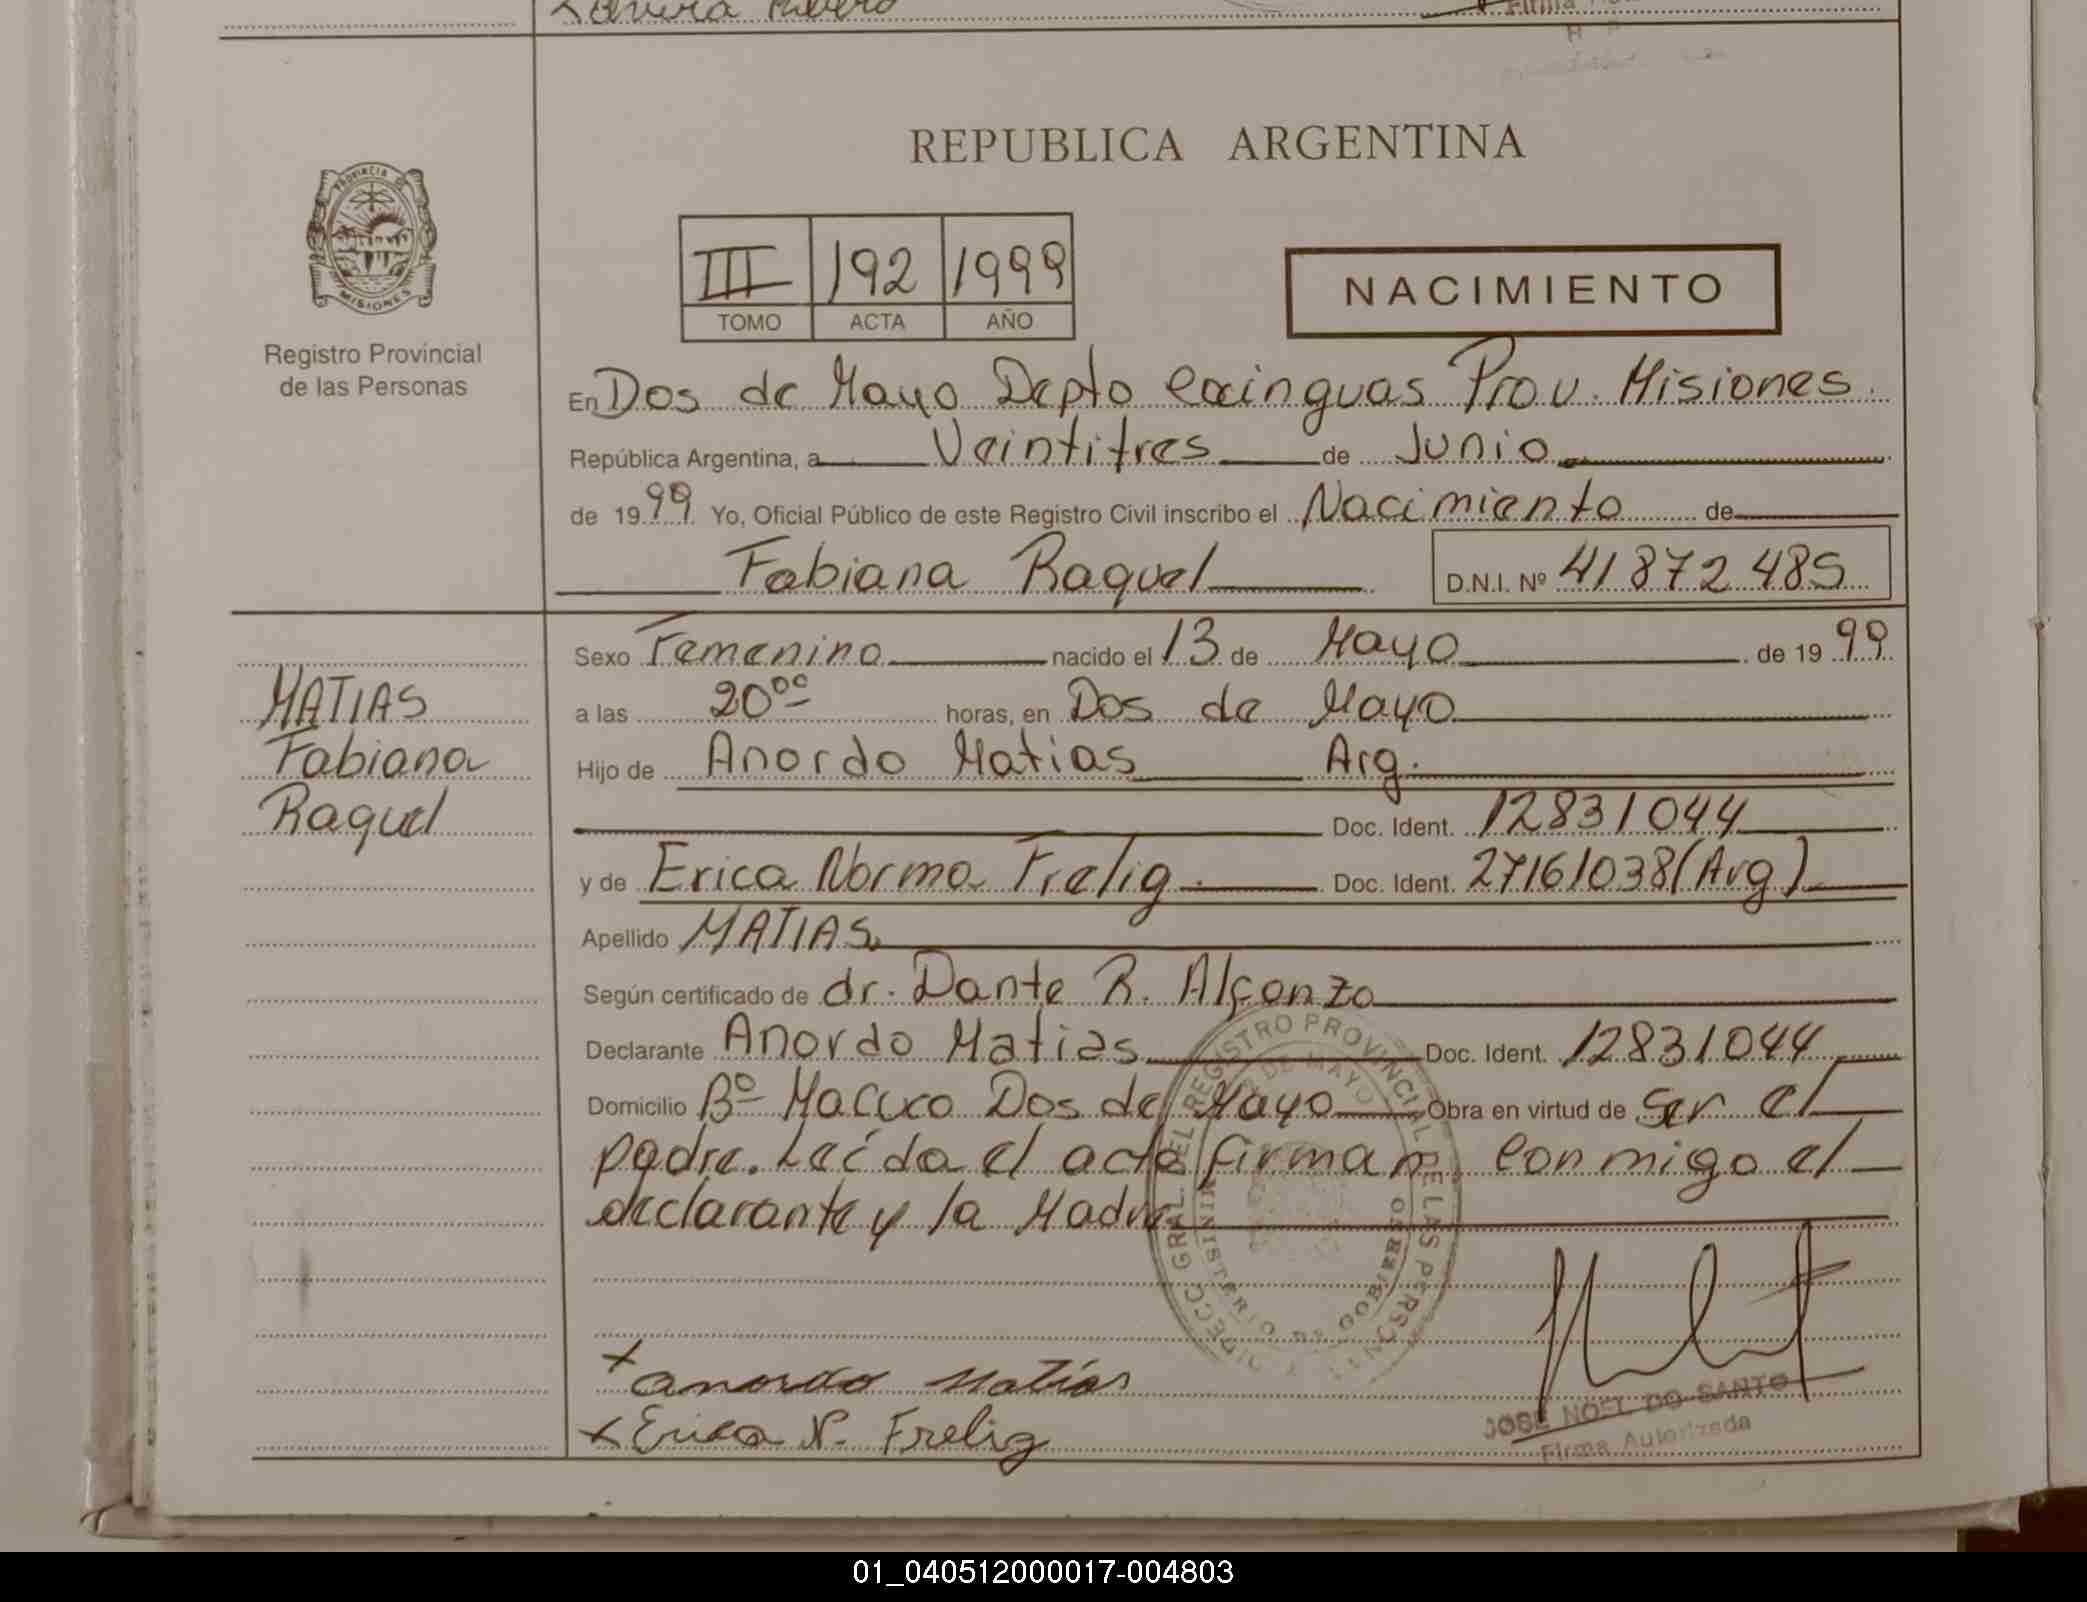 REPUBLICA ARGENTINA
PROVINCIA DE
MISIONES
Registro Provincial
de las Personas
III 192 1999
TOMO ACTA AÑO
NACIMIENTO
En Dos de Mayo Depto Caainguas Prov. Misiones.
República Argentina, a Veintitres de Junio
de 1999 Yo, Oficial Público de este Registro Civil inscribo el Nacimiento de
Fabiana Raquel D.N.I. Nº 41872485
MATIAS
Fabiana
Raquel
Sexo Femenino nacido el 13 de Mayo de 1999
a las 20ºº horas, en Dos de Mayo
Hijo de Anordo Matias Arg.
Doc. Ident. 12831044
y de Erica Norma Frelig. Doc. Ident. 27161038 (Arg)
Apellido MATIAS
Según certificado de dr. Dante R. Alfonzo
Declarante Anordo Matias Doc. Ident. 12831044
Domicilio Bº Macuco Dos de Mayo Obra en virtud de ser el
padre. Leída el acta firman conmigo el
declarante y la Madre
DIRECC. GRAL. DEL REGISTRO PROVINCIAL DE LAS PERSONAS
2 DE MAYO
MINISTERIO DE GOBIERNO
x anordo Matias
x Erica N. Frelig
JOSE NOEL DO SANTO
Firma Autorizada
01_040512000017-004803